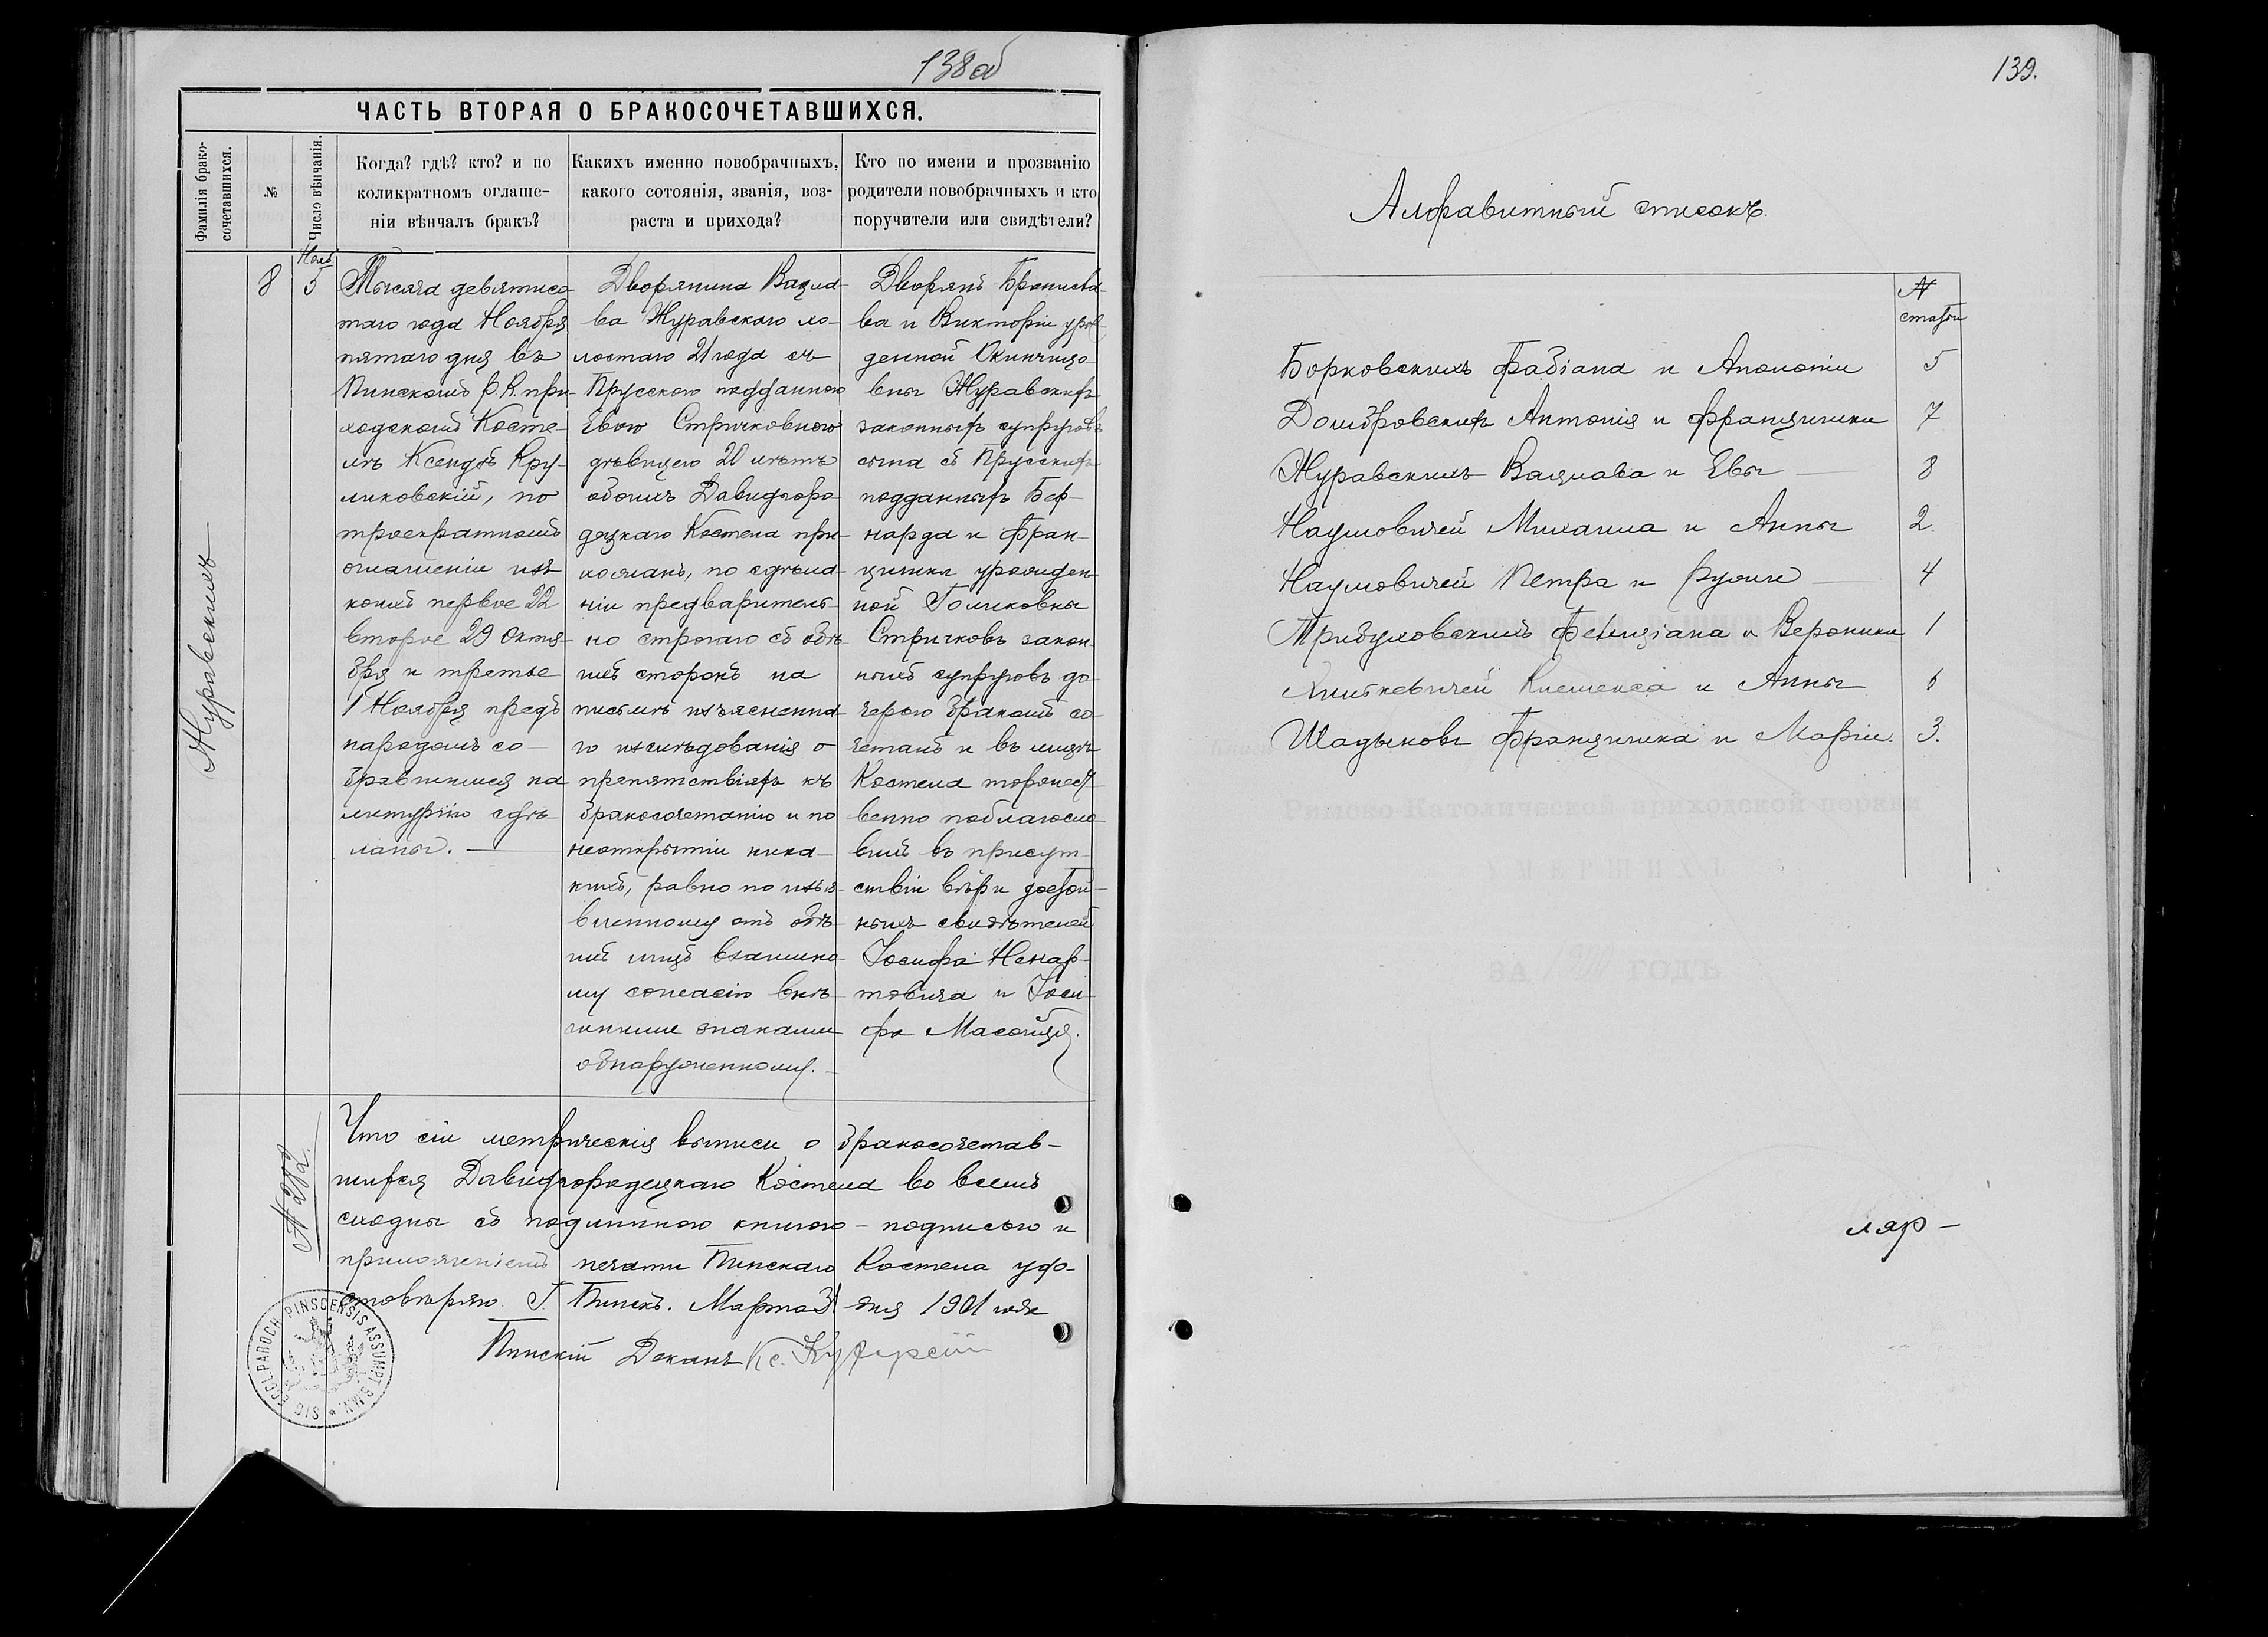 138 об
ЧАСТЬ ВТОРАЯ О БРАКОСОЧЕТАВШИХСЯ.
Фамилія брако-
сочетавшихся.
№
Число вѣнчанія.
Когда? гдѣ? кто? и по
коликратномъ оглаше-
ніи вѣнчалъ бракъ?
Какихъ именно новобрачныхъ,
какого сотоянія, званія, воз-
раста и прихода?
Кто по имени и прозванію
родители новобрачныхъ и кто
поручители или свидѣтели?
Журавскихъ
8
Нояб.
5
Тысяча девятисо-
таго года Ноября
пятаго дня въ
Пинскомъ Р. К. при-
ходскомъ Косте-
лѣ Ксендзъ Кру-
ликовскій, по
троекратномъ
оглашеніи изъ
коихъ первое 22
второе 29 Октя-
бря и третье
1 Ноября предъ
народомъ со-
бравшимся на
литургію сдѣ-
ланы.
Дворянина Вацла-
ва Журавскаго хо-
лостаго 21 года съ
Прусскою подданною
Евою Стричковною
дѣвицею 20 лѣтъ
обоихъ Давидгоро-
децкаго Костела при-
хожанъ, по сдѣла-
ніи предваритель-
но строгаго съ обѣ-
ихъ сторонъ на
письмѣ изъясненна-
го изслѣдованія о
препятствіяхъ къ
бракосочетанію и по
неоткрытіи ника-
кихъ, равно по изъя-
вленному отъ обѣ-
ихъ лицъ взаимно-
му согласію внѣ-
шними знаками
обнаруженному.
Дворянъ Бронисла-
ва и Викторіи урож-
денной Окинчицо-
вны Журавскихъ
законныхъ супруговъ
сына съ Прусскихъ
подданныхъ Бер-
нарда и Фран-
цишки урожден-
ной Голиковны
Стричковъ закон-
ныхъ супруговъ до-
черью бракомъ со-
четалъ и въ лицѣ
Костела торжест-
венно поблагосло-
вилъ въ присут-
ствіи вѣры достой-
ныхъ свидѣтелей
Іосифа Ненар-
товича и Іоси-
фа
№ 282.
Что сіи метрическія выписи о бракосочетав-
шихся Давидгородецкаго Костела во всемъ
сходны съ подлинною книгою - подписью и
приложеніемъ печати Пинскаго Костела удо-
стовѣряю. Г. Пинскъ. Марта 31 дня 1901 года
Пинскій Деканъ Кс.
SIG. ECCL. PAROCH. PINSCENSIS ASSUMPT. B.M.V.
139.
Алфавитный списокъ.
№
статьи
Борковскихъ Фабіана и Апоноліи 5
Домбровскихъ Антонія и Францишки 7
Журавскихъ Вацлава и Евы 8
Наумовичей Михаила и Анны 2
Наумовичей Петра и Рузаліи 4
Трибуховскихъ Фелиціана и Вероники 1
Климента и Анны 6
Шадыковъ Францишка и Маріи 3.
ляр-